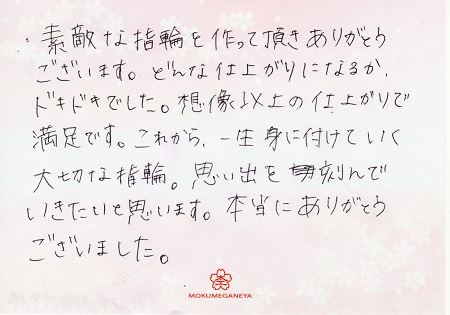 素敵な指輪を作って頂きありがとう
ございます。どんな仕上がりになるか、
ドキドキでした。想像以上の仕上がりで
満足です。これから、一生身に付けていく
大切な指輪。思い出を刻んで
いきたいと思います。本当にありがとう
ございました。
MOKUMEGANEYA